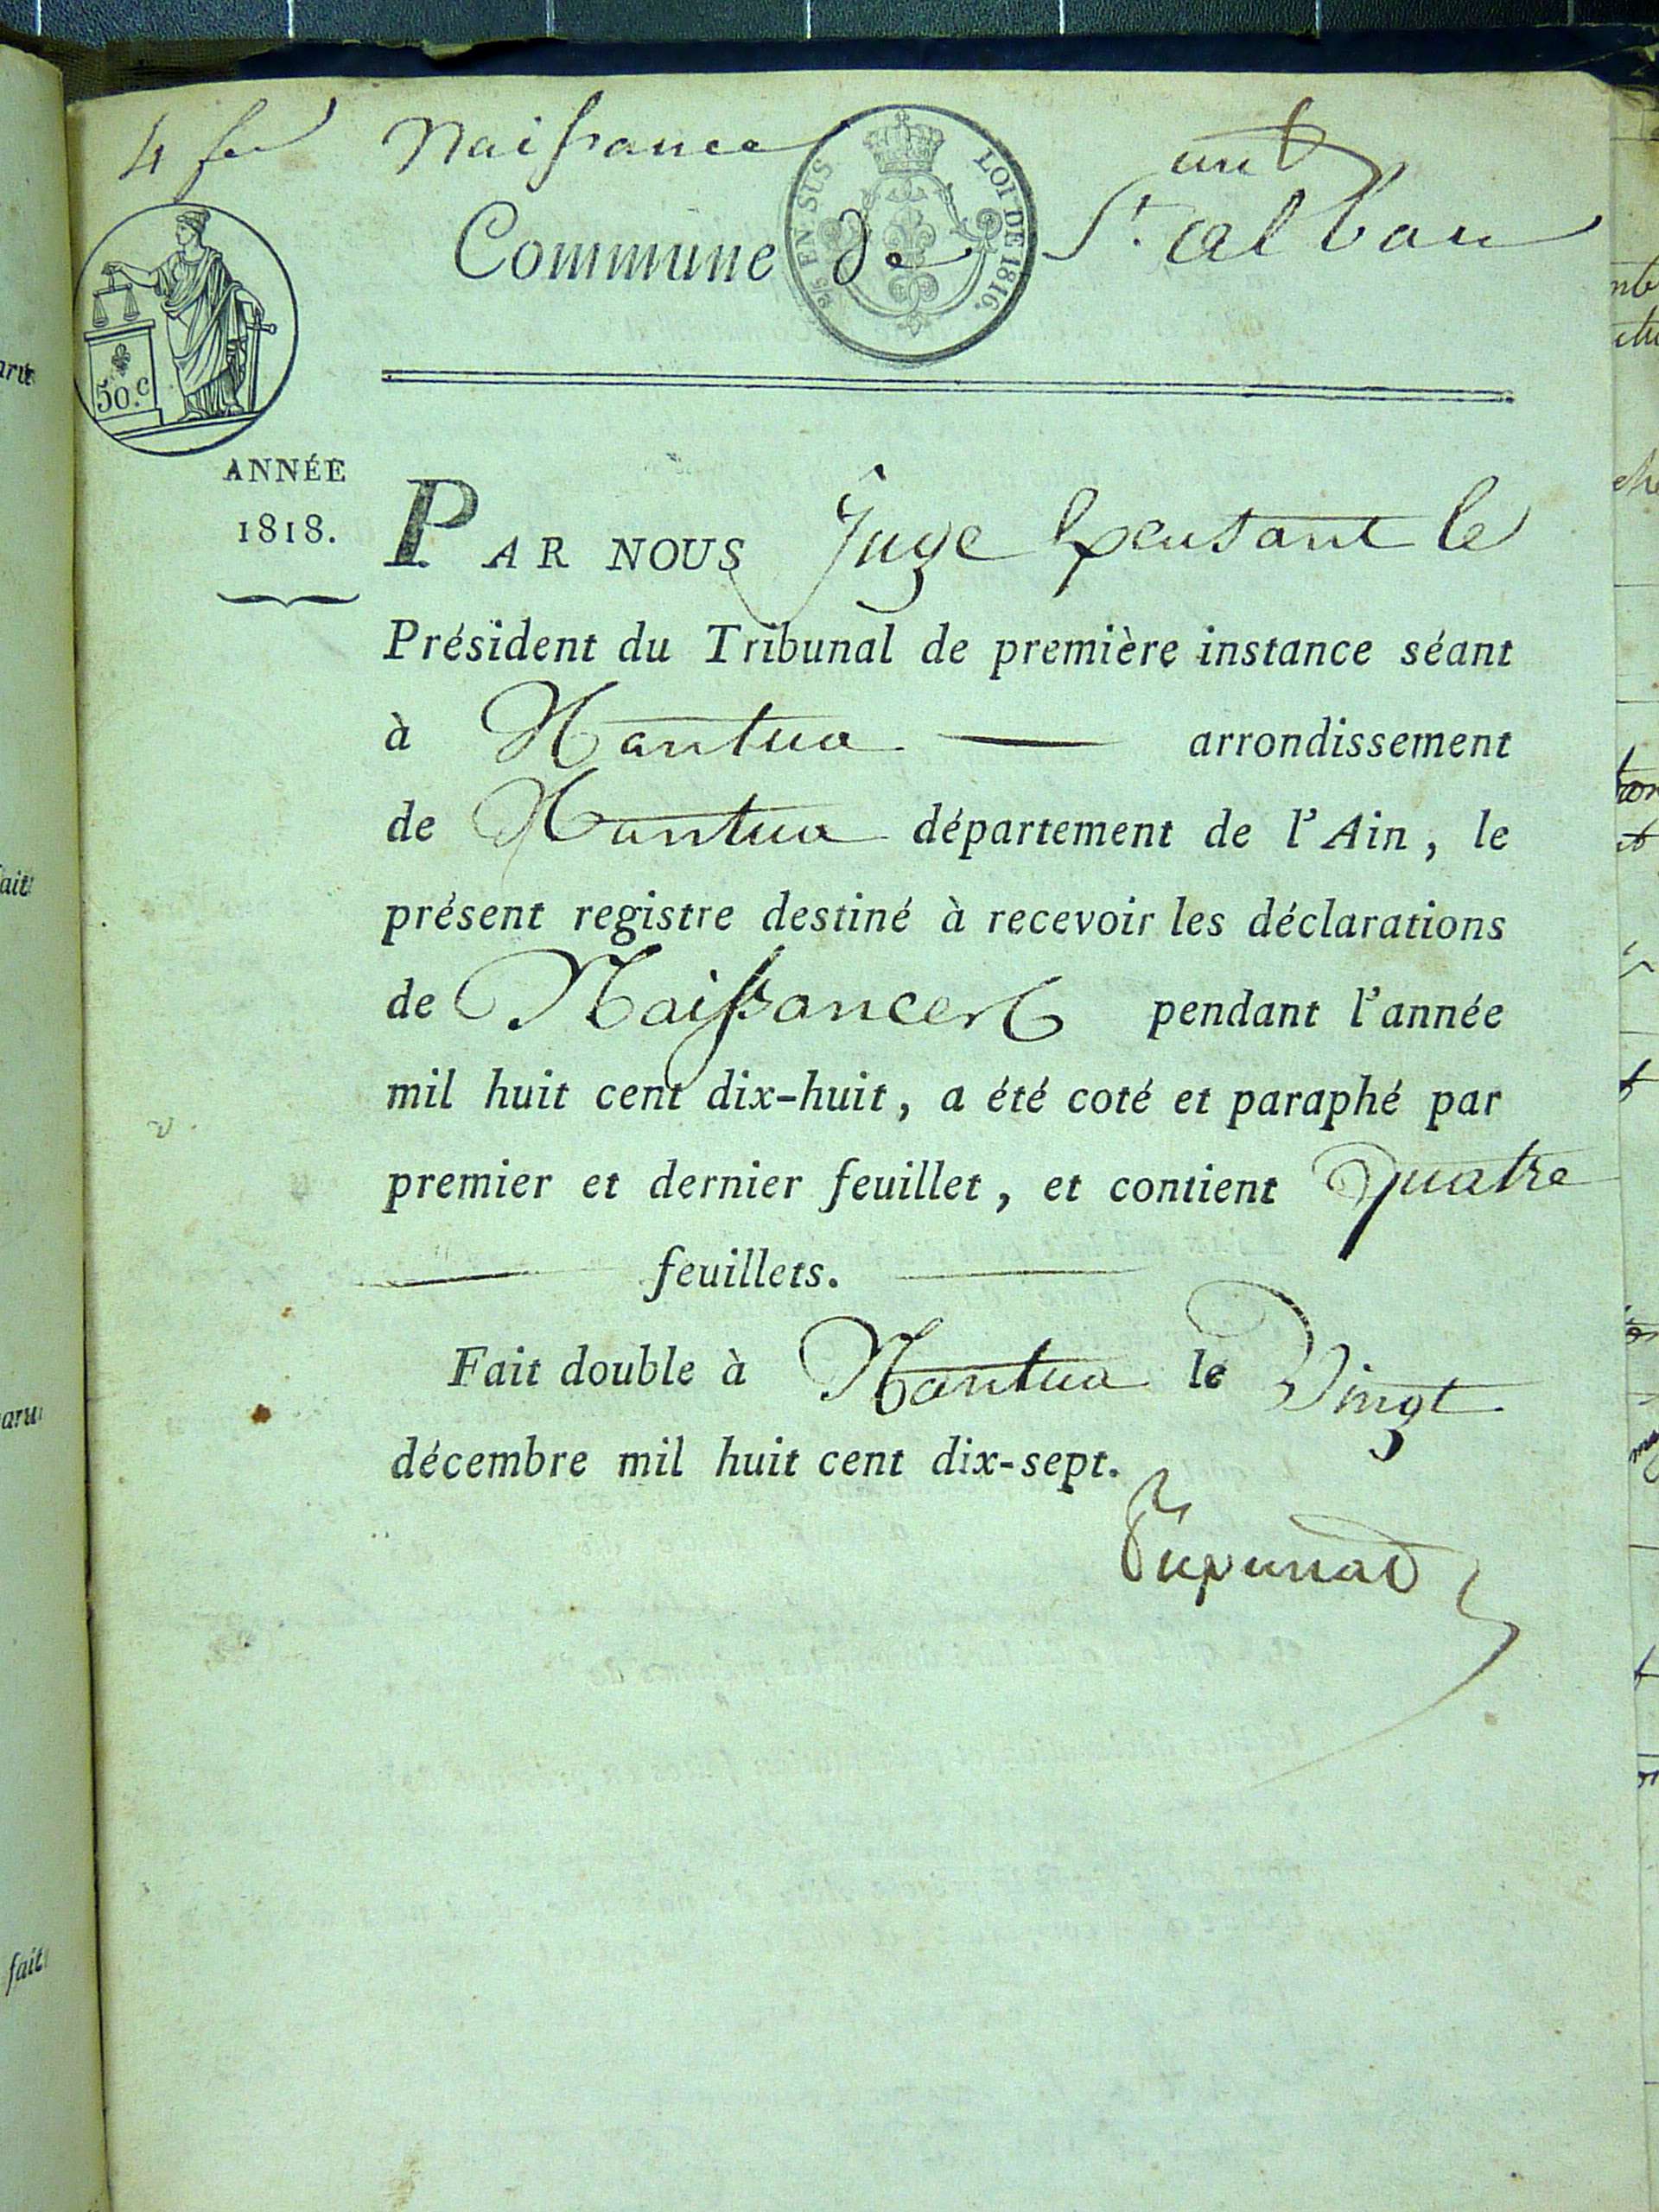 4 fet Naissance
unt
Commune de St. alban
2/5 EN SUS
LOI DE 1816.
50.c
ANNÉE
1818.
PAR NOUS Juge le
Président du Tribunal de première instance séant
à Nantua arrondissement
de Nantua département de l'Ain, le
présent registre destiné à recevoir les déclarations
de Naissances pendant l'année
mil huit cent dix-huit, a été coté et paraphé par
premier et dernier feuillet, et contient quatre
feuillets.
Fait double à Nantua le Vingt
décembre mil huit cent dix-sept.